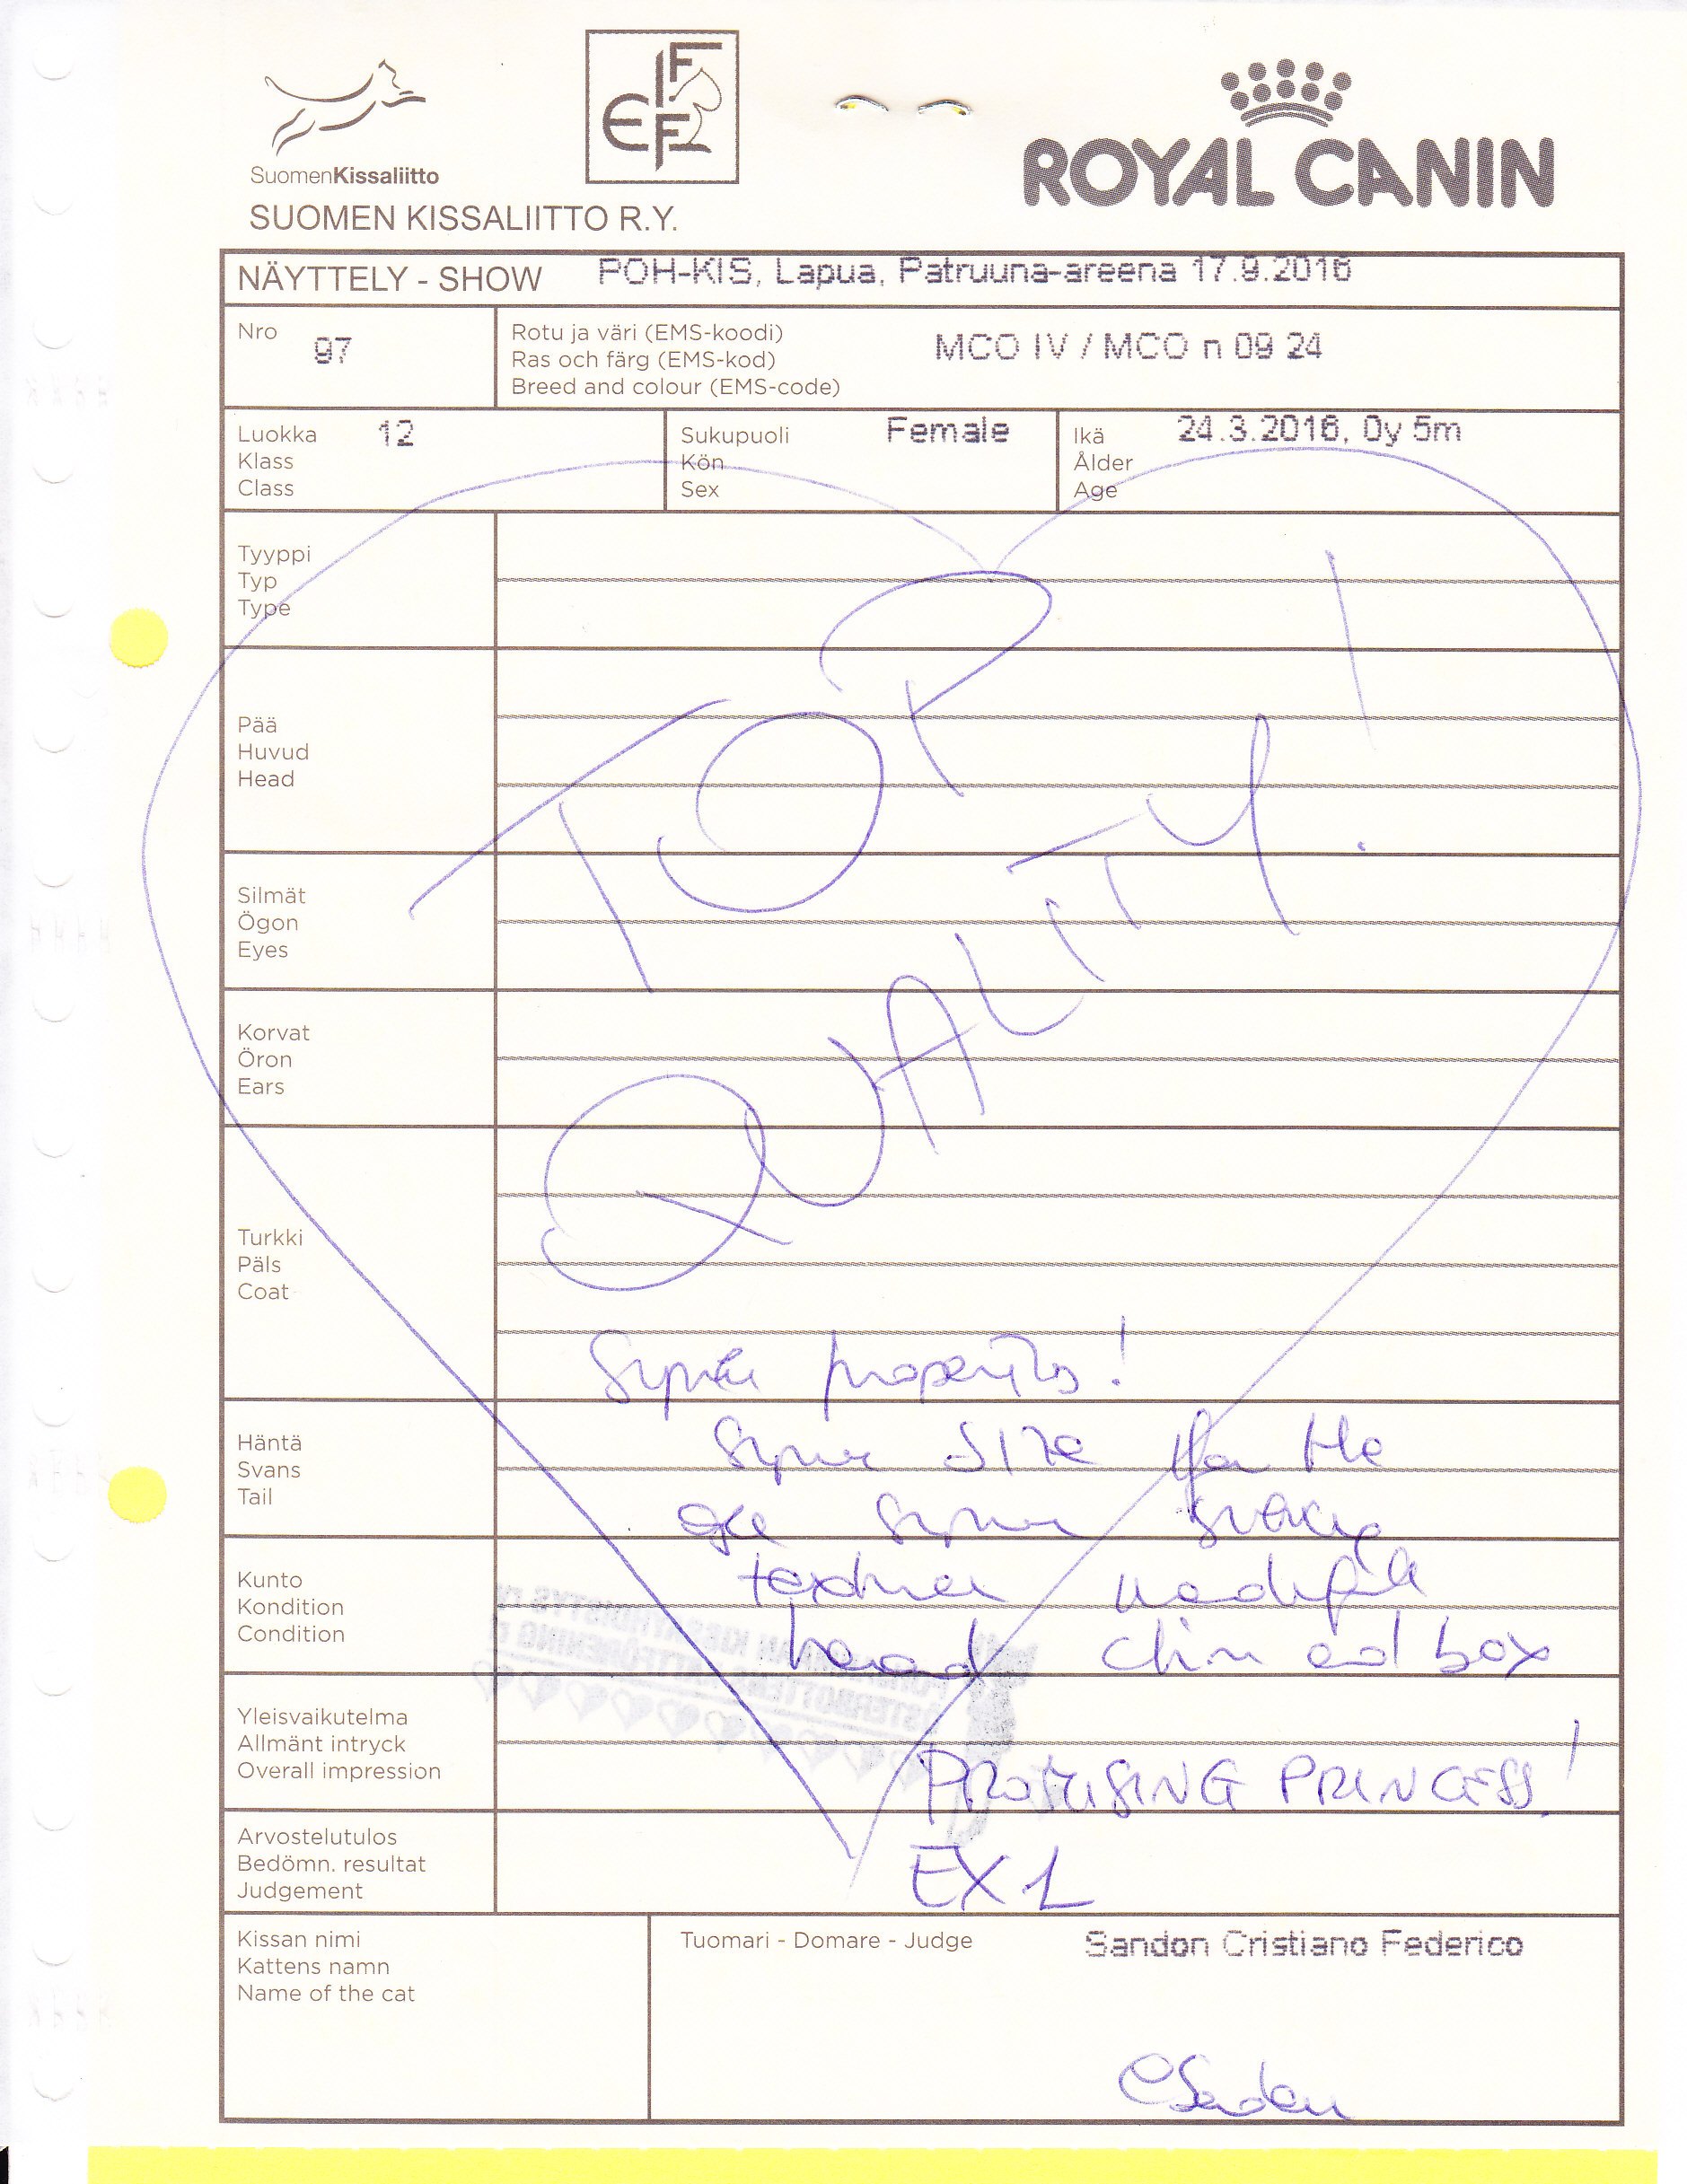 SuomenKissaliitto
FIFE
ROYAL CANIN
SUOMEN KISSALIITTO R.Y.
NÄYTTELY - SHOW POH-KIS, Lapua, Patruuna-areena 17.9.2016
Nro 97
Rotu ja väri (EMS-koodi)
Ras och färg (EMS-kod)
Breed and colour (EMS-code)
MCO IV / MCO n 09 24
Luokka 12
Klass
Class
Sukupuoli Female
Kön
Sex
Ikä 24.3.2016, 0y 5m
Ålder
Age
Tyyppi
Typ
Type
Pää
Huvud
Head
Silmät
Ögon
Eyes
Korvat
Öron
Ears
Turkki
Päls
Coat
TOP
QUALITY!
Super !
Häntä
Svans
Tail
super size for the
age super
Kunto
Kondition
Condition
texture
head chin and box
Yleisvaikutelma
Allmänt intryck
Overall impression
PROMISING PRINCESS!
Arvostelutulos
Bedömn. resultat
Judgement
EX 1
Kissan nimi
Kattens namn
Name of the cat
Tuomari - Domare - Judge Sandon Cristiano Federico
CSandon